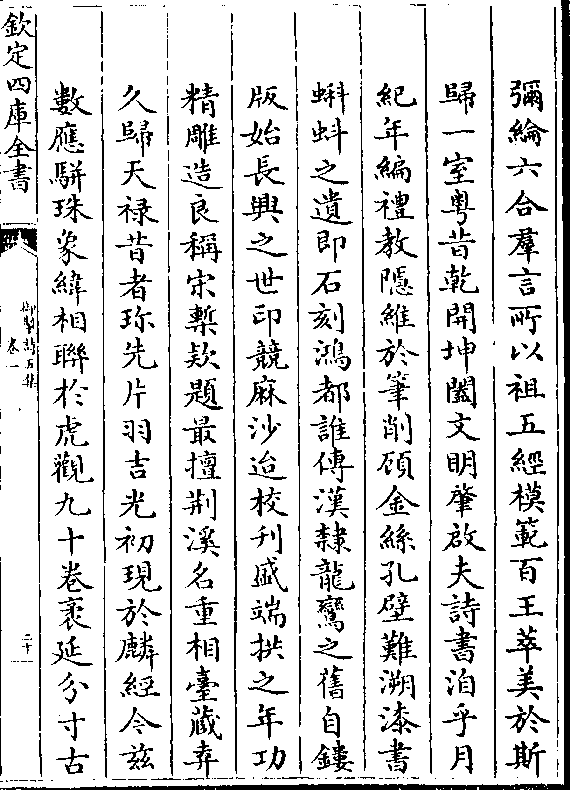 彌綸六合羣言所以祖五經模範百王萃美於斯
歸一室粤昔乾開坤闔文明肇啟夫詩書洎乎月
紀年編禮教隱維於筆削顧金絲孔壁難溯漆書
蝌蚪之遺即石刻鴻都誰傳漢隸龍鸞之舊自鏤
版始長興之世印競麻沙迨校刋盛端拱之年功
精雕造良稱宋槧欵題最擅荆溪名重相臺藏弆
久歸天禄昔者珍先片羽吉光初現於麟經今兹
數應駢珠象緯相聯於虎觀九十卷袠延分寸古
欽定四庫全書
御製詩五集
卷一
二十